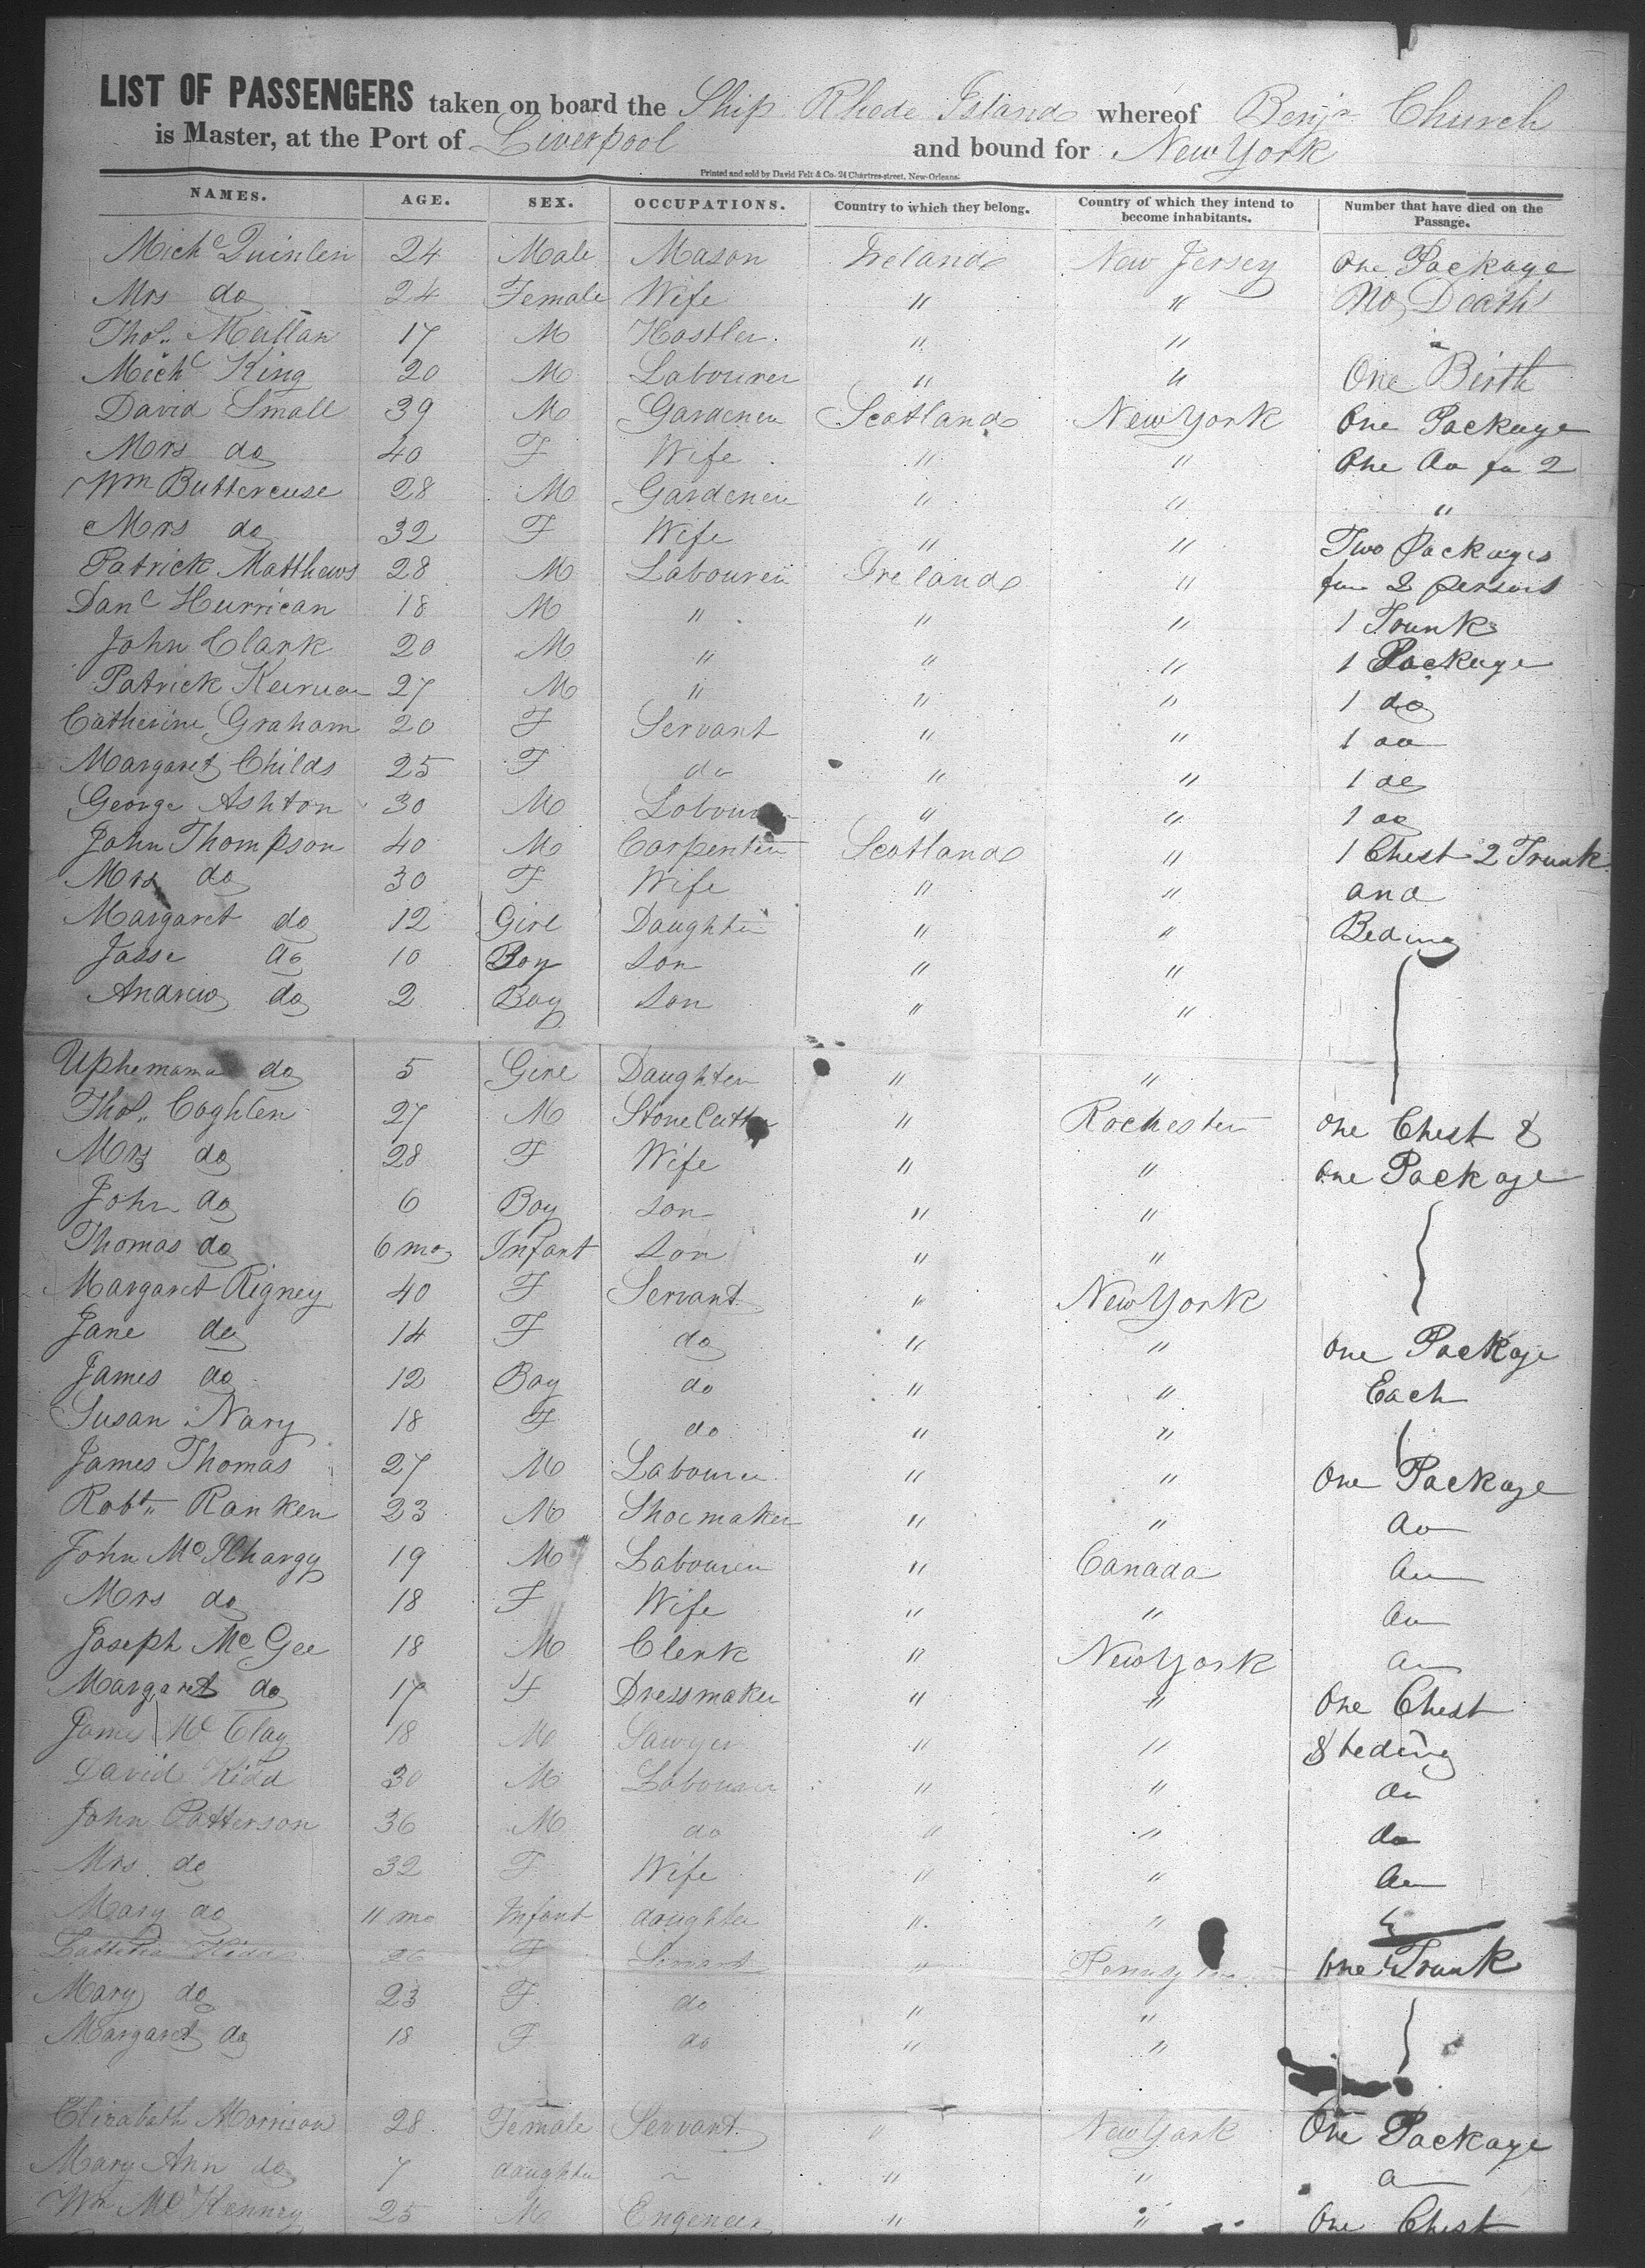 LIST OF PASSENGERS taken on board the Ship Rhode Island whereof Benjn Church
is Master, at the Port of Liverpool and bound for New York
Printed and sold by David Felt & Co. 24 Chartres-street, New-Orleans.
NAMES. AGE. SEX. OCCUPATIONS. Country to which they belong. Country of which they intend to become inhabitants. Number that have died on the Passage.
Michl Quinlen 24 Male Mason Ireland New Jersey One Package
Mrs do 24 Female Wife " " No Deaths
Thos. Mullan 17 M Hostler " "
Michl King 20 M Labourer " " One Birth
David Small 39 M Gardener Scotland New York One Package
Mrs do 40 F Wife " " One do for 2
Wm Buttercuse 28 M Gardener " " "
Mrs do 32 F Wife " " Two Packages
Patrick Matthews 28 M Labourer Ireland " for 2 persons
Danl Hurrican 18 M " " " 1 Trunk
John Clark 20 M " " " 1 Package
Patrick 27 M " " " 1 do
Catherine Graham 20 F Servant " " 1 do
Margaret Childs 25 F do " " 1 do
George Ashton 30 M Labourer " " 1 do
John Thompson 40 M Carpenter Scotland " 1 Chest 2 Trunk
Mrs do 30 F Wife " " and
Margaret do 12 Girl Daughter " " Beding
Jasse do 10 Boy Son " "
Andrew do 2 Boy Son " "
Uphemama do 5 Girl Daughter " "
Thos. Coghlen 27 M Stone Cutter " Rochester One Chest &
Mrs do 28 F Wife " " One Package
John do 6 Boy Son " "
Thomas do 6 mo Infant Son " "
Margaret Rigney 40 F Servant " New York
Jane do 14 F do " " One Package
James do 12 Boy do " " Each
Susan Nary 18 F do " "
James Thomas 27 M Labourer " " One Package
Robt. Ranken 23 M Shoemaker " " do
John 19 M Labourer " Canada do
Mrs do 18 F Wife " " do
Joseph McGee 18 M Clerk " New York do
Margaret do 17 F Dressmaker " " One Chest
James McClay 18 M Sawyer " " & beding
David Kidd 30 M Labourer " " do
John Patterson 36 M do " " do
Mrs do 32 F Wife " " do
Mary do 11 mo Infant daughter " "
Kidd 26 F Servant " One Trunk
Mary do 23 F do " "
Margaret do 18 F do " "
Elizabath Morrison 28 Female Servant " New York One Package
Mary Ann do 7 daughter ~ " " do
Wm McKenney 25 M Engeneer " " One Chest